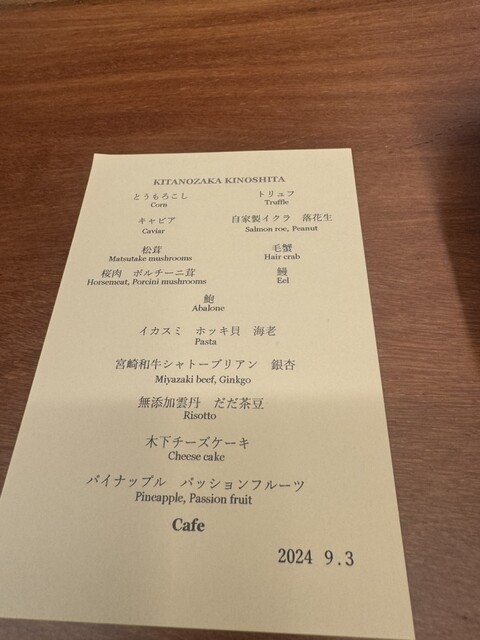 KITANOZAKA KINOSHITA
とうもろこし トリュフ
Corn Truffle
キャビア 自家製イクラ 落花生
Caviar Salmon roe, Peanut
松茸 毛蟹
Matsutake mushrooms Hair crab
桜肉 ポルチーニ茸 鰻
Horsemeat, Porcini mushrooms Eel
鮑
Abalone
イカスミ ホッキ貝 海老
Pasta
宮崎和牛シャトーブリアン 銀杏
Miyazaki beef, Ginkgo
無添加雲丹 だだ茶豆
Risotto
木下チーズケーキ
Cheese cake
パイナップル パッションフルーツ
Pineapple, Passion fruit
Cafe
2024 9.3